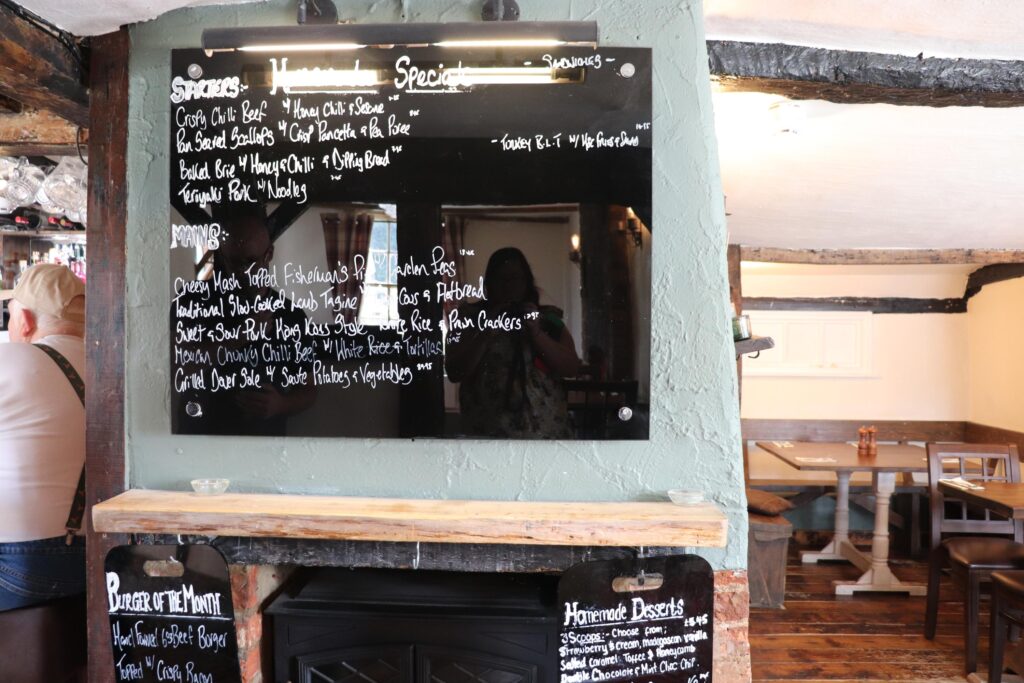 Homemade Specials
STARTERS:-
Crispy Chilli Beef w/ Honey Chilli & Sesame
Pan Seared Scallops w/ Crisp Pancetta & Pea Puree
Baked Brie w/ Honey & Chilli & Dipping Bread
Teriyaki Pork w/ Noodles
- SANDWICHES -
- Turkey B.L.T w/
MAINS:-
Cheesy Mash Topped Fisherman's Pie w/ Garden Peas
Traditional Slow-Cooked Lamb Tagine Cous & Flatbread
Sweet & Sour Pork Hong Kong Style Rice & Prawn Crackers
Mexican Chunky Chilli Beef w/ White Rice & Tortillas
Grilled Dover Sole w/ Saute Potatoes & Vegetables
BURGER OF THE MONTH
Beef Burger
Topped w/ Crispy
Homemade Desserts
3 Scoops:- Choose from; £5.45
Strawberry & cream, madagascan vanilla
Salted Caramel, Toffee & Honeycomb
Double Chocolate & Mint Choc Chip.